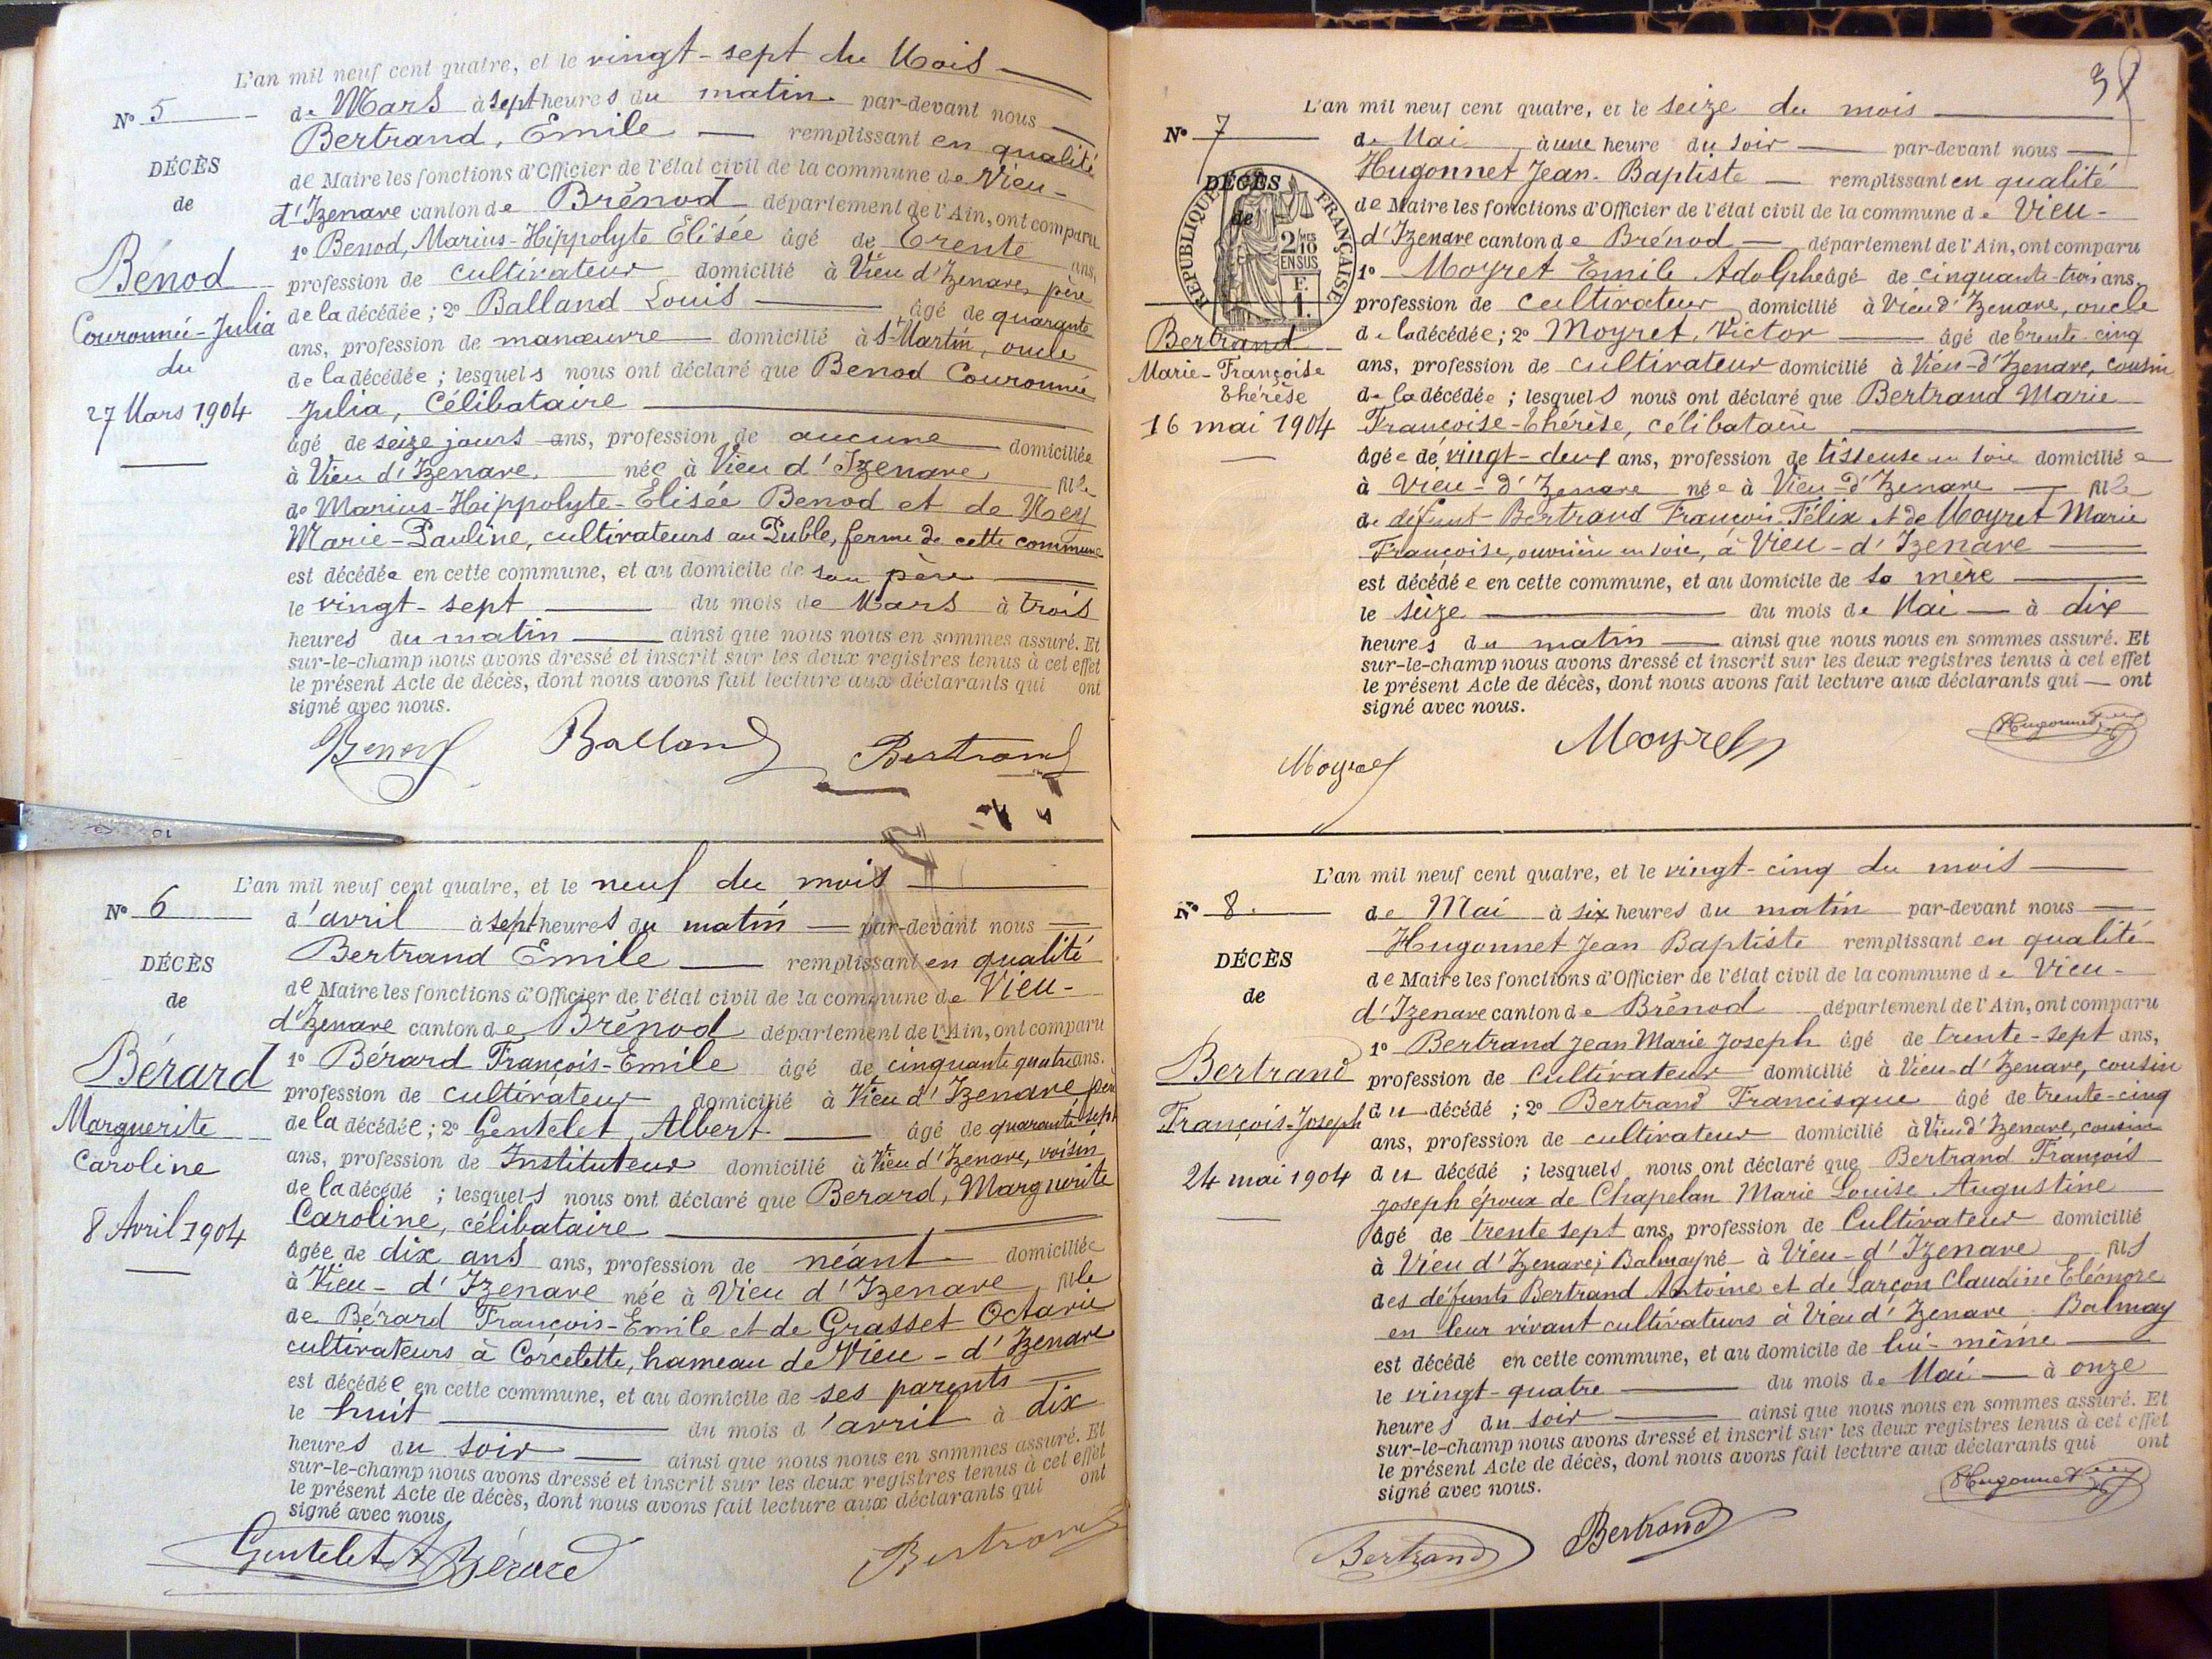 L'an mil neuf cent quatre, et le vingt-sept du Mois
N° 5
de Mars à sept heures du matin par-devant nous
Bertrand, Emile remplissant en qualité
DÉCÈS
de Maire les fonctions d'Officier de l'état civil de la commune de Vieu-
de
d'Izenave canton de Brénod département de l'Ain, ont comparu
1° Benod, Marius-Hippolyte Elisée âgé de trente ans,
Bénod
profession de cultivateur domicilié à Vieu d'Izenave, père
Couronnée-Julia
de la décédée ; 2° Balland Louis âgé de quarante
ans, profession de manœuvre domicilié à St Martin, oncle
du
de la décédée ; lesquels nous ont déclaré que Benod Couronnée
27 Mars 1904
Julia, Célibataire
âgé de seize jours ans, profession de aucune domiciliée
à Vieu d'Izenave, née à Vieu d'Izenave fille
de Marius-Hippolyte-Elisée Benod et de Ney
Marie-Pauline, cultivateurs au Puble, ferme de cette commune
est décédée en cette commune, et au domicile de son père
le vingt-sept du mois de Mars à trois
heures du matin ainsi que nous nous en sommes assuré. Et
sur-le-champ nous avons dressé et inscrit sur les deux registres tenus à cet effet
le présent Acte de décès, dont nous avons fait lecture aux déclarants qui ont
signé avec nous.
Benod Balland Bertrand
L'an mil neuf cent quatre, et le neuf du mois
N° 6
d'avril à sept heures du matin par-devant nous
Bertrand Emile remplissant en qualité
DÉCÈS
de Maire les fonctions d'Officier de l'état civil de la commune de Vieu-
de
d'Izenave canton de Brénod département de l'Ain, ont comparu
1° Bérard François-Emile âgé de cinquante quatre ans.
Bérard
profession de cultivateur domicilié à Vieu d'Izenave, père
Marguerite
de la décédée ; 2° Gentelet, Albert âgé de quarante sept
ans, profession de Instituteur domicilié à Vieu d'Izenave, voisin
Caroline
de la décédé ; lesquels nous ont déclaré que Berard, Marguerite
8 Avril 1904
Caroline, célibataire
âgée de dix ans ans, profession de néant domiciliée
à Vieu-d'Izenave née à Vieu d'Izenave fille
de Bérard François-Emile et de Grasset Octavie
cultivateurs à Corcelette, hameau de Vieu-d'Izenave
est décédée en cette commune, et au domicile de ses parents
le huit du mois d'avril à dix
heures du soir ainsi que nous nous en sommes assuré. Et
sur-le-champ nous avons dressé et inscrit sur les deux registres tenus à cet effet
le présent Acte de décès, dont nous avons fait lecture aux déclarants qui ont
signé avec nous,
Gentelet A Bérard Bertrand
L'an mil neuf cent quatre, et le seize du mois
N° 7
de Mai à une heure du soir par-devant nous
Hugonnet Jean-Baptiste remplissant en qualité
DÉCÈS
de
RÉPUBLIQUE FRANÇAISE
2/10 MES EN SUS
F. 1.
de Maire les fonctions d'Officier de l'état civil de la commune de Vieu-
d'Izenave canton de Brénod département de l'Ain, ont comparu
1° Moyret Emile Adolphe âgé de cinquante-trois ans,
profession de cultivateur domicilié à Vieu d'Izenave, oncle
Bertrand
de la décédée ; 2° Moyret, Victor âgé de trente-cinq
Marie-Françoise
ans, profession de cultivateur domicilié à Vieu-d'Izenave, cousin
Thérèse
de la décédée ; lesquels nous ont déclaré que Bertrand Marie
16 mai 1904
Françoise-Thérèse, célibataire
âgée de vingt-deux ans, profession de tisseuse en soie domiciliée
à Vieu-d'Izenave née à Vieu-d'Izenave fille
de défunt Bertrand François-Félix et de Moyret Marie
Françoise, ouvrière en soie, à Vieu-d'Izenave
est décédée en cette commune, et au domicile de sa mère
le seize du mois de Mai à dix
heures du matin ainsi que nous nous en sommes assuré. Et
sur-le-champ nous avons dressé et inscrit sur les deux registres tenus à cet effet
le présent Acte de décès, dont nous avons fait lecture aux déclarants qui ont
signé avec nous.
Moyret Moyret Hugonnet
L'an mil neuf cent quatre, et le vingt-cinq du mois
N° 8.
de Mai à six heures du matin par-devant nous
Hugonnet Jean Baptiste remplissant en qualité
DÉCÈS
de Maire les fonctions d'Officier de l'état civil de la commune de Vieu-
de
d'Izenave canton de Brénod département de l'Ain, ont comparu
1° Bertrand Jean Marie Joseph âgé de trente-sept ans,
Bertrand
profession de Cultivateur domicilié à Vieu-d'Izenave, cousin
François-Joseph
du décédé ; 2° Bertrand Francisque âgé de trente-cinq
ans, profession de cultivateur domicilié à Vieu d'Izenave, cousin
24 mai 1904
du décédé ; lesquels nous ont déclaré que Bertrand François
joseph époux de Chapelan Marie Louise Augustine
âgé de trente sept ans, profession de Cultivateur domicilié
à Vieu d'Izenave, Balmay né à Vieu-d'Izenave fils
des défunts Bertrand Antoine et de Larçon Claudine Eléonore
en leur vivant cultivateurs à Vieu d'Izenave Balmay
est décédé en cette commune, et au domicile de lui-même
le vingt-quatre du mois de Mai à onze
heures du soir ainsi que nous nous en sommes assuré. Et
sur-le-champ nous avons dressé et inscrit sur les deux registres tenus à cet effet
le présent Acte de décès, dont nous avons fait lecture aux déclarants qui ont
signé avec nous.
Bertrand Bertrand Hugonnet